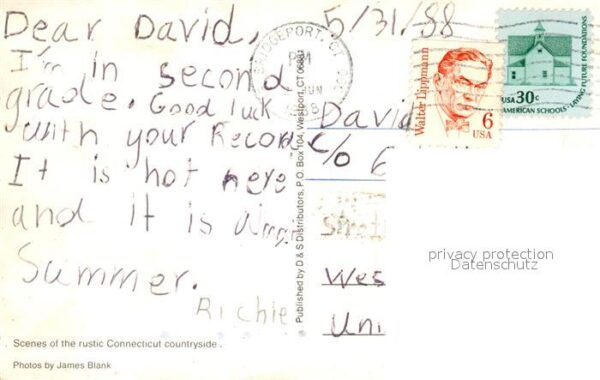 Dear David,
5/31/88
I'm in second
grade. Good luck
with your Record
It is hot here
and it is
Summer.
Richie
David
c/o
Wes
Uni
BRIDGEPORT, CT
PM
JUN
Walter Lippmann
6
USA
USA 30c
AMERICAN SCHOOLS · LAYING FUTURE FOUNDATIONS
Published by D & S Distributors, P.O. Box 104, Westport, CT 06881
privacy protection
Datenschutz
Scenes of the rustic Connecticut countryside.
Photos by James Blank